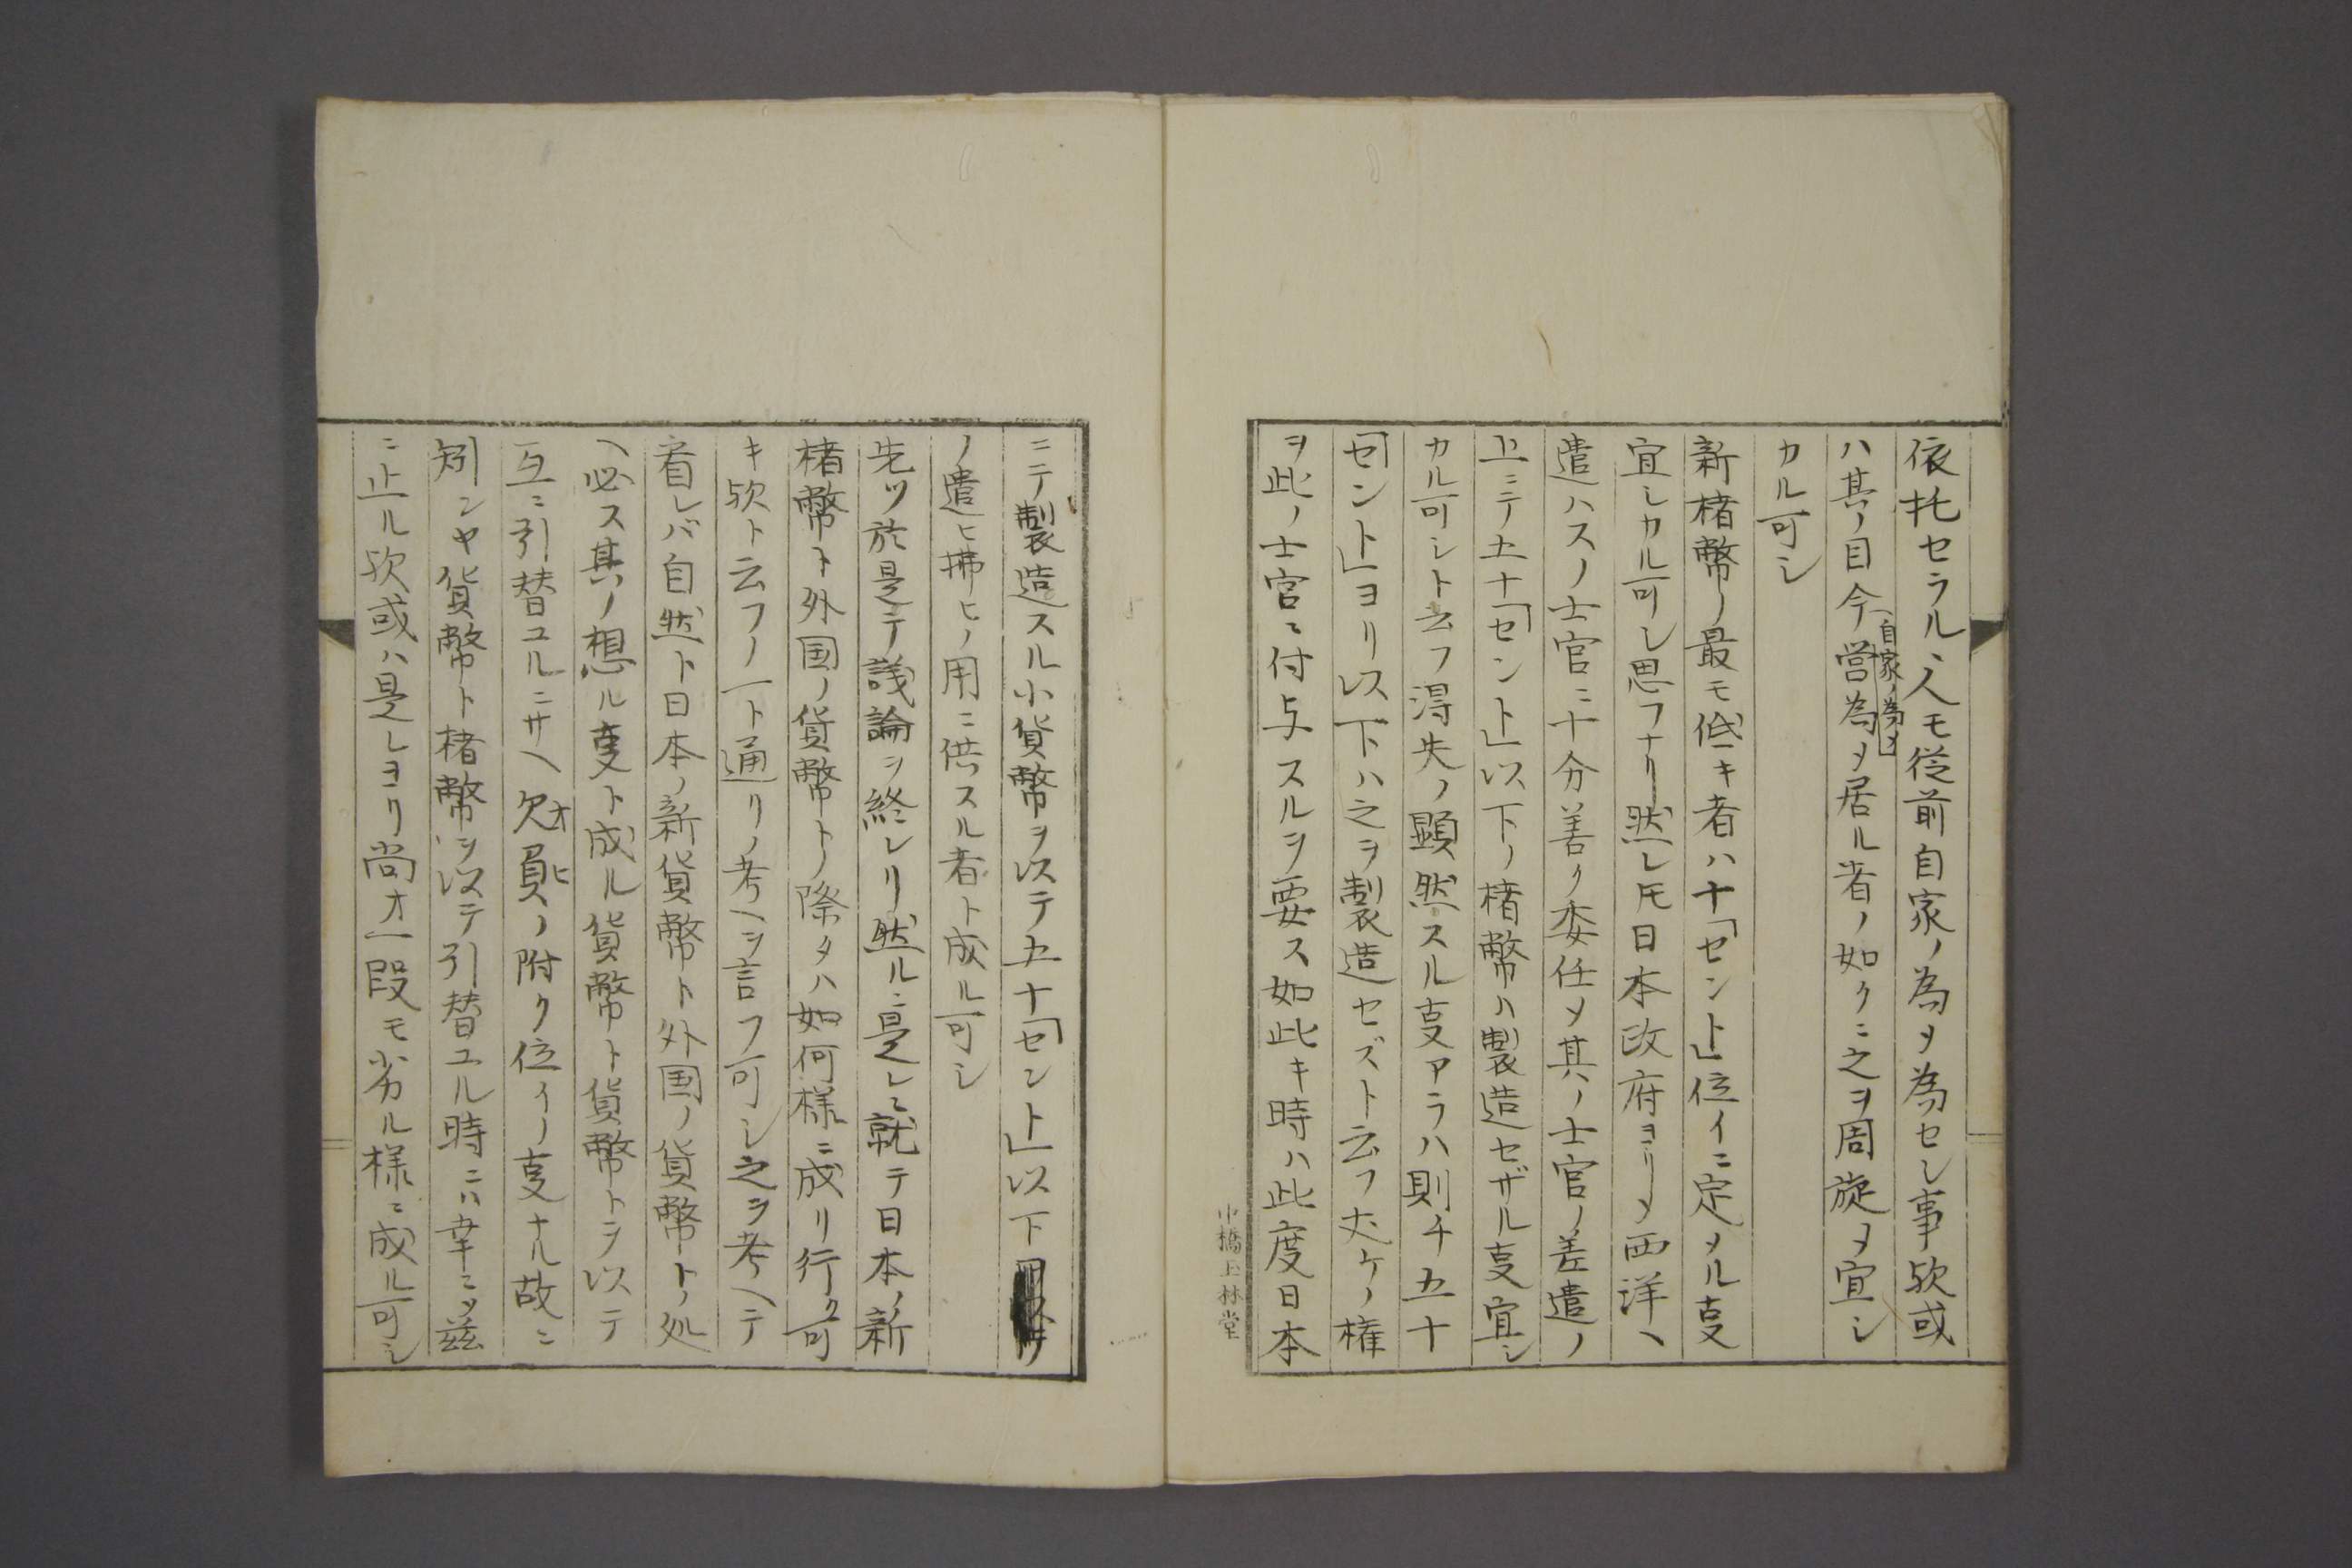 依托セラルヽ人モ従前自家ノ為ヲ為セシ事欤或
ハ其ノ目今営為〆居ル者ノ如クニ之ヲ周旋〆宜シ
(自家ノ為メ)
カル可シ
新楮幣ノ最モ低キ者ハ十「セント」位イニ定メル叓
宜シカル可シ思フナリ然レ𪜈日本政府ヨリ〆西洋ヘ
遣ハスノ士官ニ十分善ク委任〆其ノ士官ノ差遣ノ
上ニテ五十「セント」以下ノ楮幣ハ製造セザル叓宜シ
カル可シト云フ得失ノ顕然スル叓アラハ則チ五十
「セント」ヨリ以下ハ之ヲ製造セズト云フ丈ケノ権
ヲ此ノ士官ニ付与スルヲ要ス如此キ時ハ此度日本
中橋上林堂
ニテ製造スル小貨幣ヲ以テ五十「セント」以下
ノ遣ヒ拂ヒノ用ニ供スル者ト成ル可シ
先ツ於是テ議論ヲ終レリ然ルニ是レニ就テ日本ノ新
楮幣ト外国ノ貨幣トノ際タハ如何様ニ成リ行ク可
キ欤ト云フノ一ト通リノ考ヘヲ言フ可シ之ヲ考ヘテ
看レバ自然ト日本ノ新貨幣ト外国ノ貨幣トノ処
ヘ必ス其ノ想ル叓ト成ル貨幣ト貨幣トヲ以テ
互ニ引替ユルニサヘ欠オ負ヒノ附ク位イノ叓ナル故ニ
矧ンヤ貨幣ト楮幣ヲ以テ引替ユル時ニハ幸ニ〆茲
ニ止ル欤或ハ是レヨリ尚オ一段モ劣ル様ニ成ル可シ